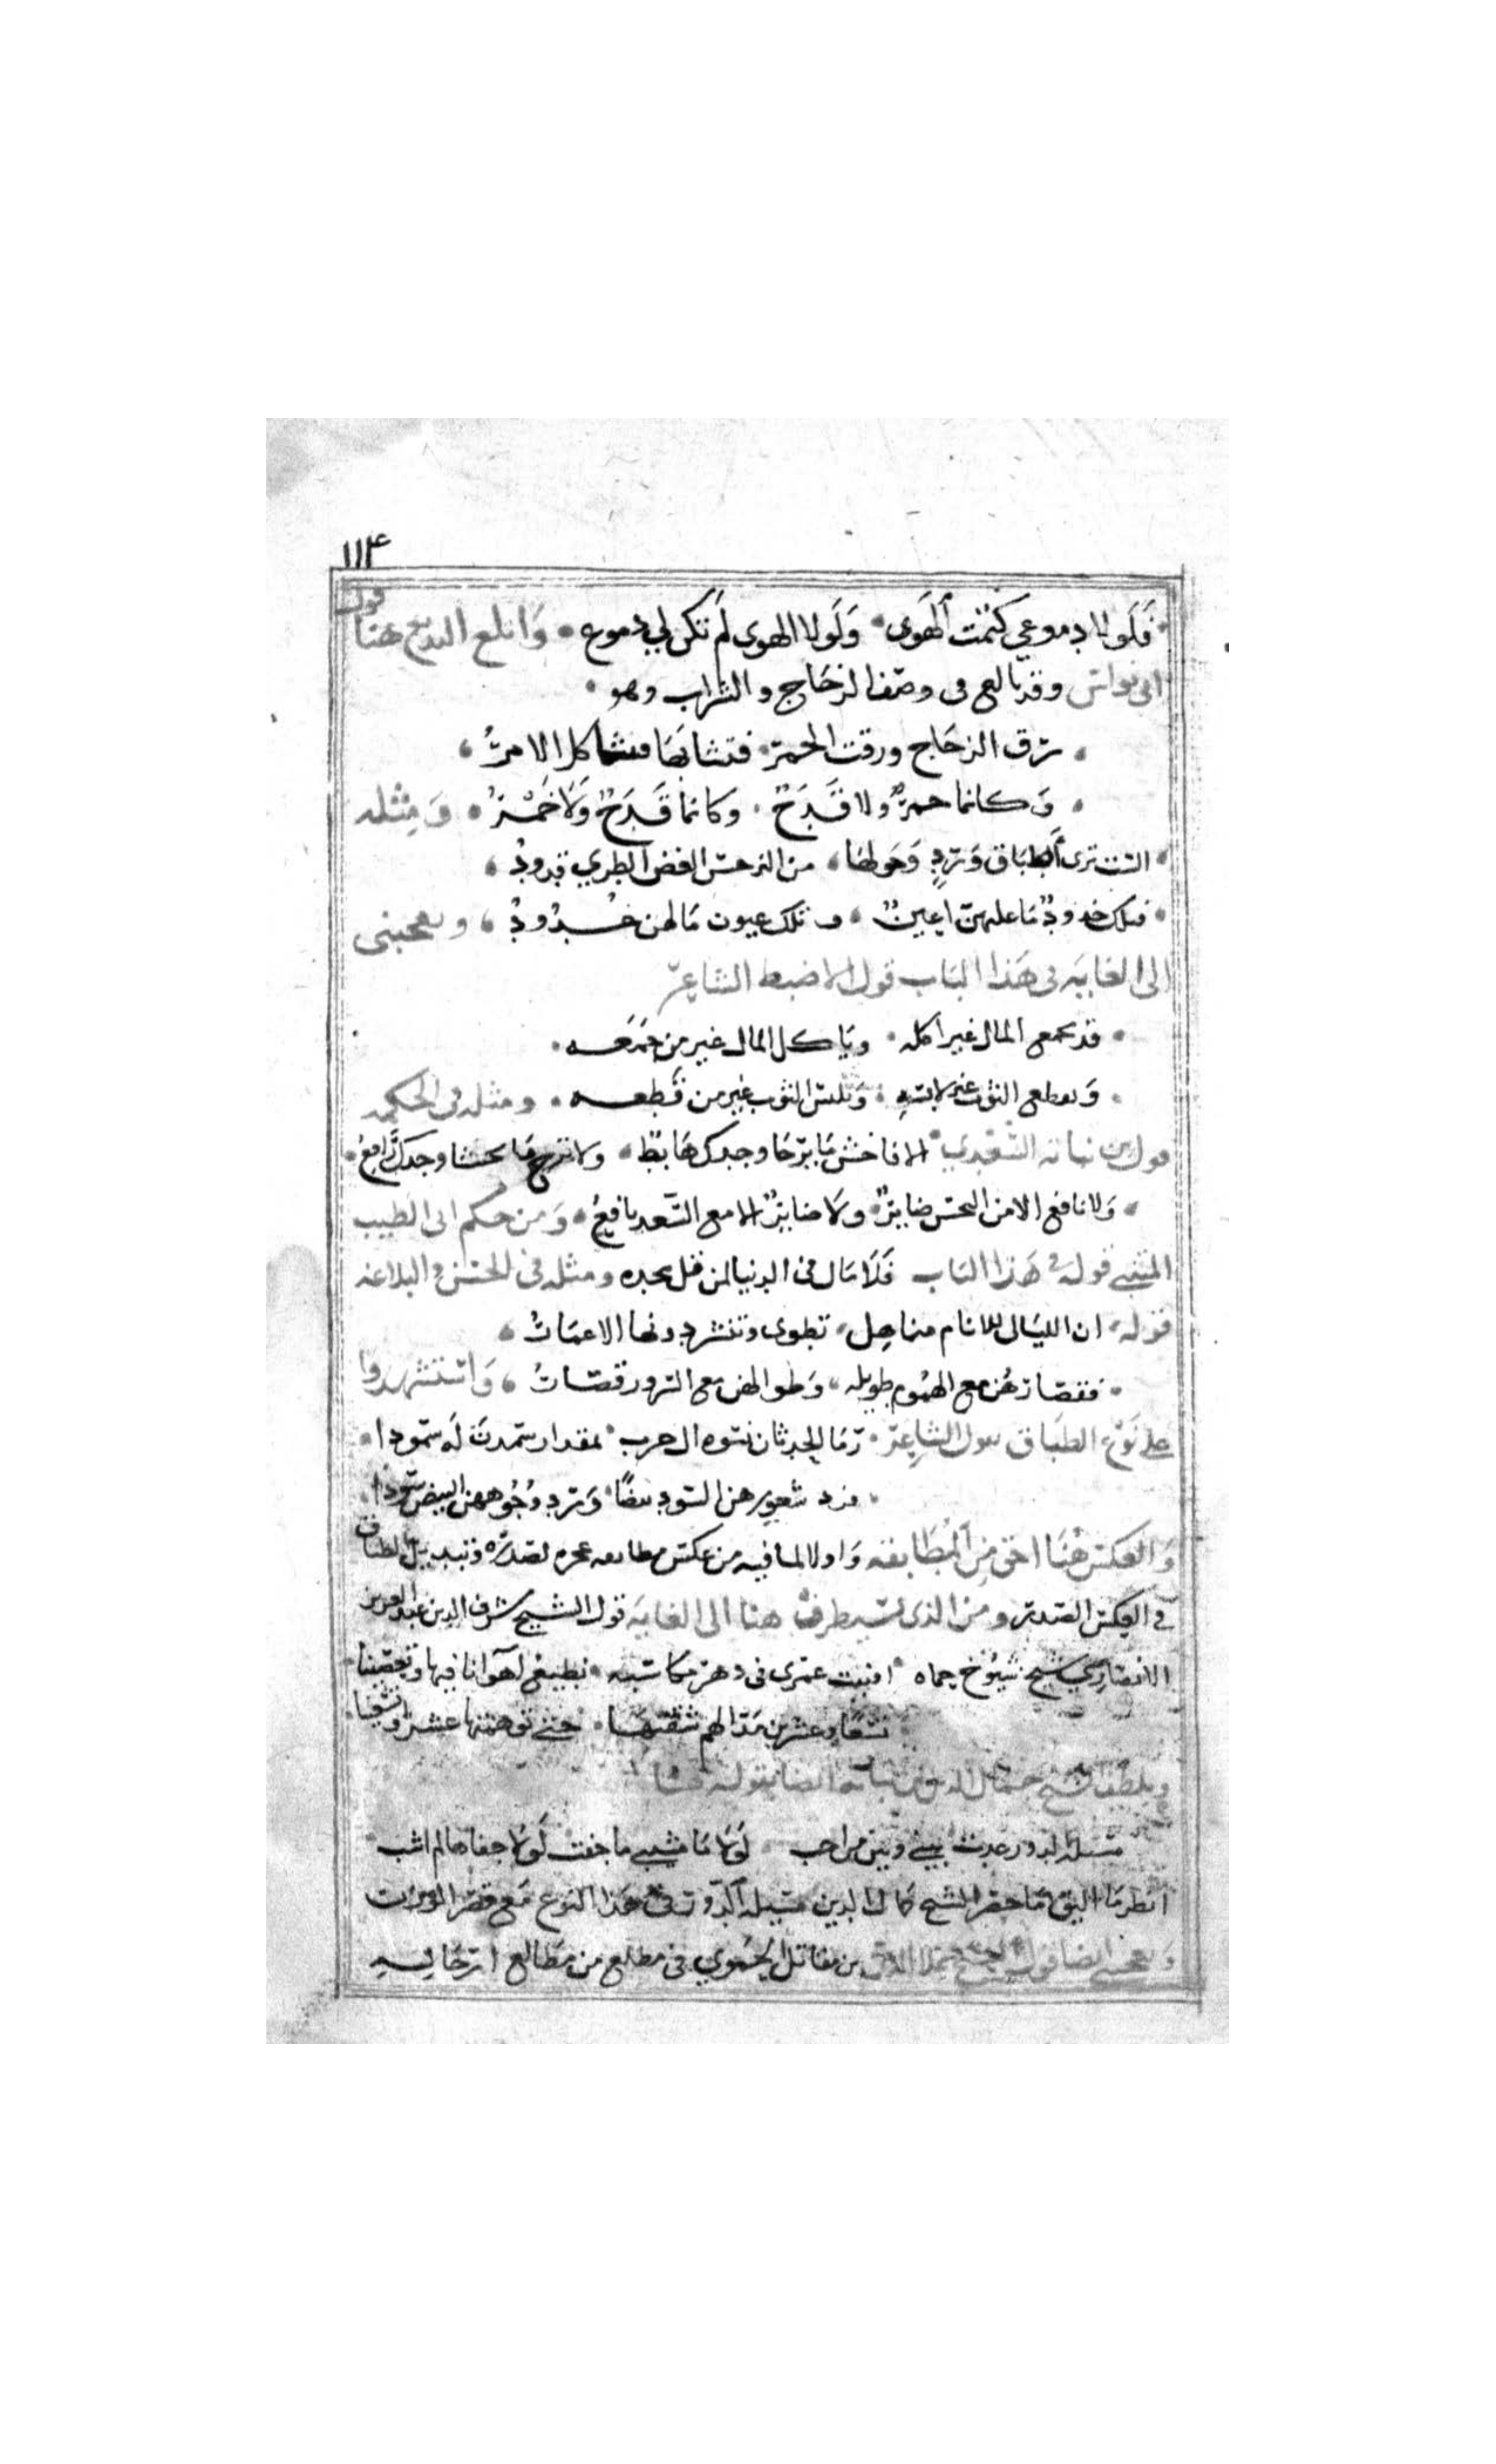 ١١٤
فَلَولا دموعي كتمت الهَوى وَلَولا الهوى لم تكن لي دموع وَابلع البديع هنا قول
ابى نواس وقد بالغ فى وصف الزجاج والشراب وهو
رق الزجاج ورقت الخمر فتشابها فتشاكل الامر
وَكانما خمر ولا قَدَح وكانما قَدَح وَلَا خَمْر وَمِثله
الست ترى اطباق وَرد وَحولها من النرجس الغض الطري قدود
فتلك خدود مَا عليهن اعين وتلك عيون مَا لهن خدود ويعجبنى
الى الغايه فى هَذا البَاب قول الاضبط الشاعر
قد يجمع المال غير اكله ويَاكل المال غير من جَمَعه
وَيقطع الثوب غير لابسه وَيَلبس الثوب غير من قطعه ومثله فى الحكمه
قول بن نباته السَعدي الا فاخش مَا يرجَا وجدك هَابط ولا ترج مَا يخشا وجدك رافع
وَلا نافع الا من النحس ضاير ولَا ضاير الا مع السَّعد نافع وَمن حكم ابى الطيب
المتنبى قوله فى هَذا البَاب فَلَا مَال فى الدنيا لمن قل مجده ومثله فى الحسن والبلاغه
قوله ان الليَالى للانام مناهل تطوى وتنشر دونها الاعمَار
فقصارهن مع الهمُوم طويله وَطوالهن مع السرور قصار وَاستشهدوا
على نَوع الطبَاق بقول الشاعر رَمَا الحدثان نسوه ال حرب بمقدار سَمدن لَه سمودا
فرد شعورهن السود بيضًا وَرَد وُجُوههن البيض سُودا
وَالعكس هُنَا احق مِن المُطَابقه وَاولا لما فيه من عكس مطابقه عجزه لصدره وتبديل الطباق
فى العكس الصدر ومن الذى يستطرف هنا الى الغايَه قول الشيخ شرف الدين عبد العزيز
الانصَاري شيخ شيُوخ حماه افنيت عمرى فى دهر مكاسبه تطيع اهوانا فيها وتعصينا
تسعًا وعشرين مَدّ الهم شقتهَا حتى توهمتها عشرا وتسعينا
ويلطف الشيخ جمَال الدين بن نباته ايضا بقوله
مسَله الدور غدت بينى وبين من احب لَولا مَا مشيبى ما خفت لَولا جفاها لم اشب
انظر مَا اليق مَا حضر الشيخ كمَال الدين مسَله الدور فى هَذا النوع مَع قصر الوزن
وَيعجبنى ايضا قول الشيخ جمال الدين بن مقاتل الحَموي فى مطلع من مَطَالع ازجَاله